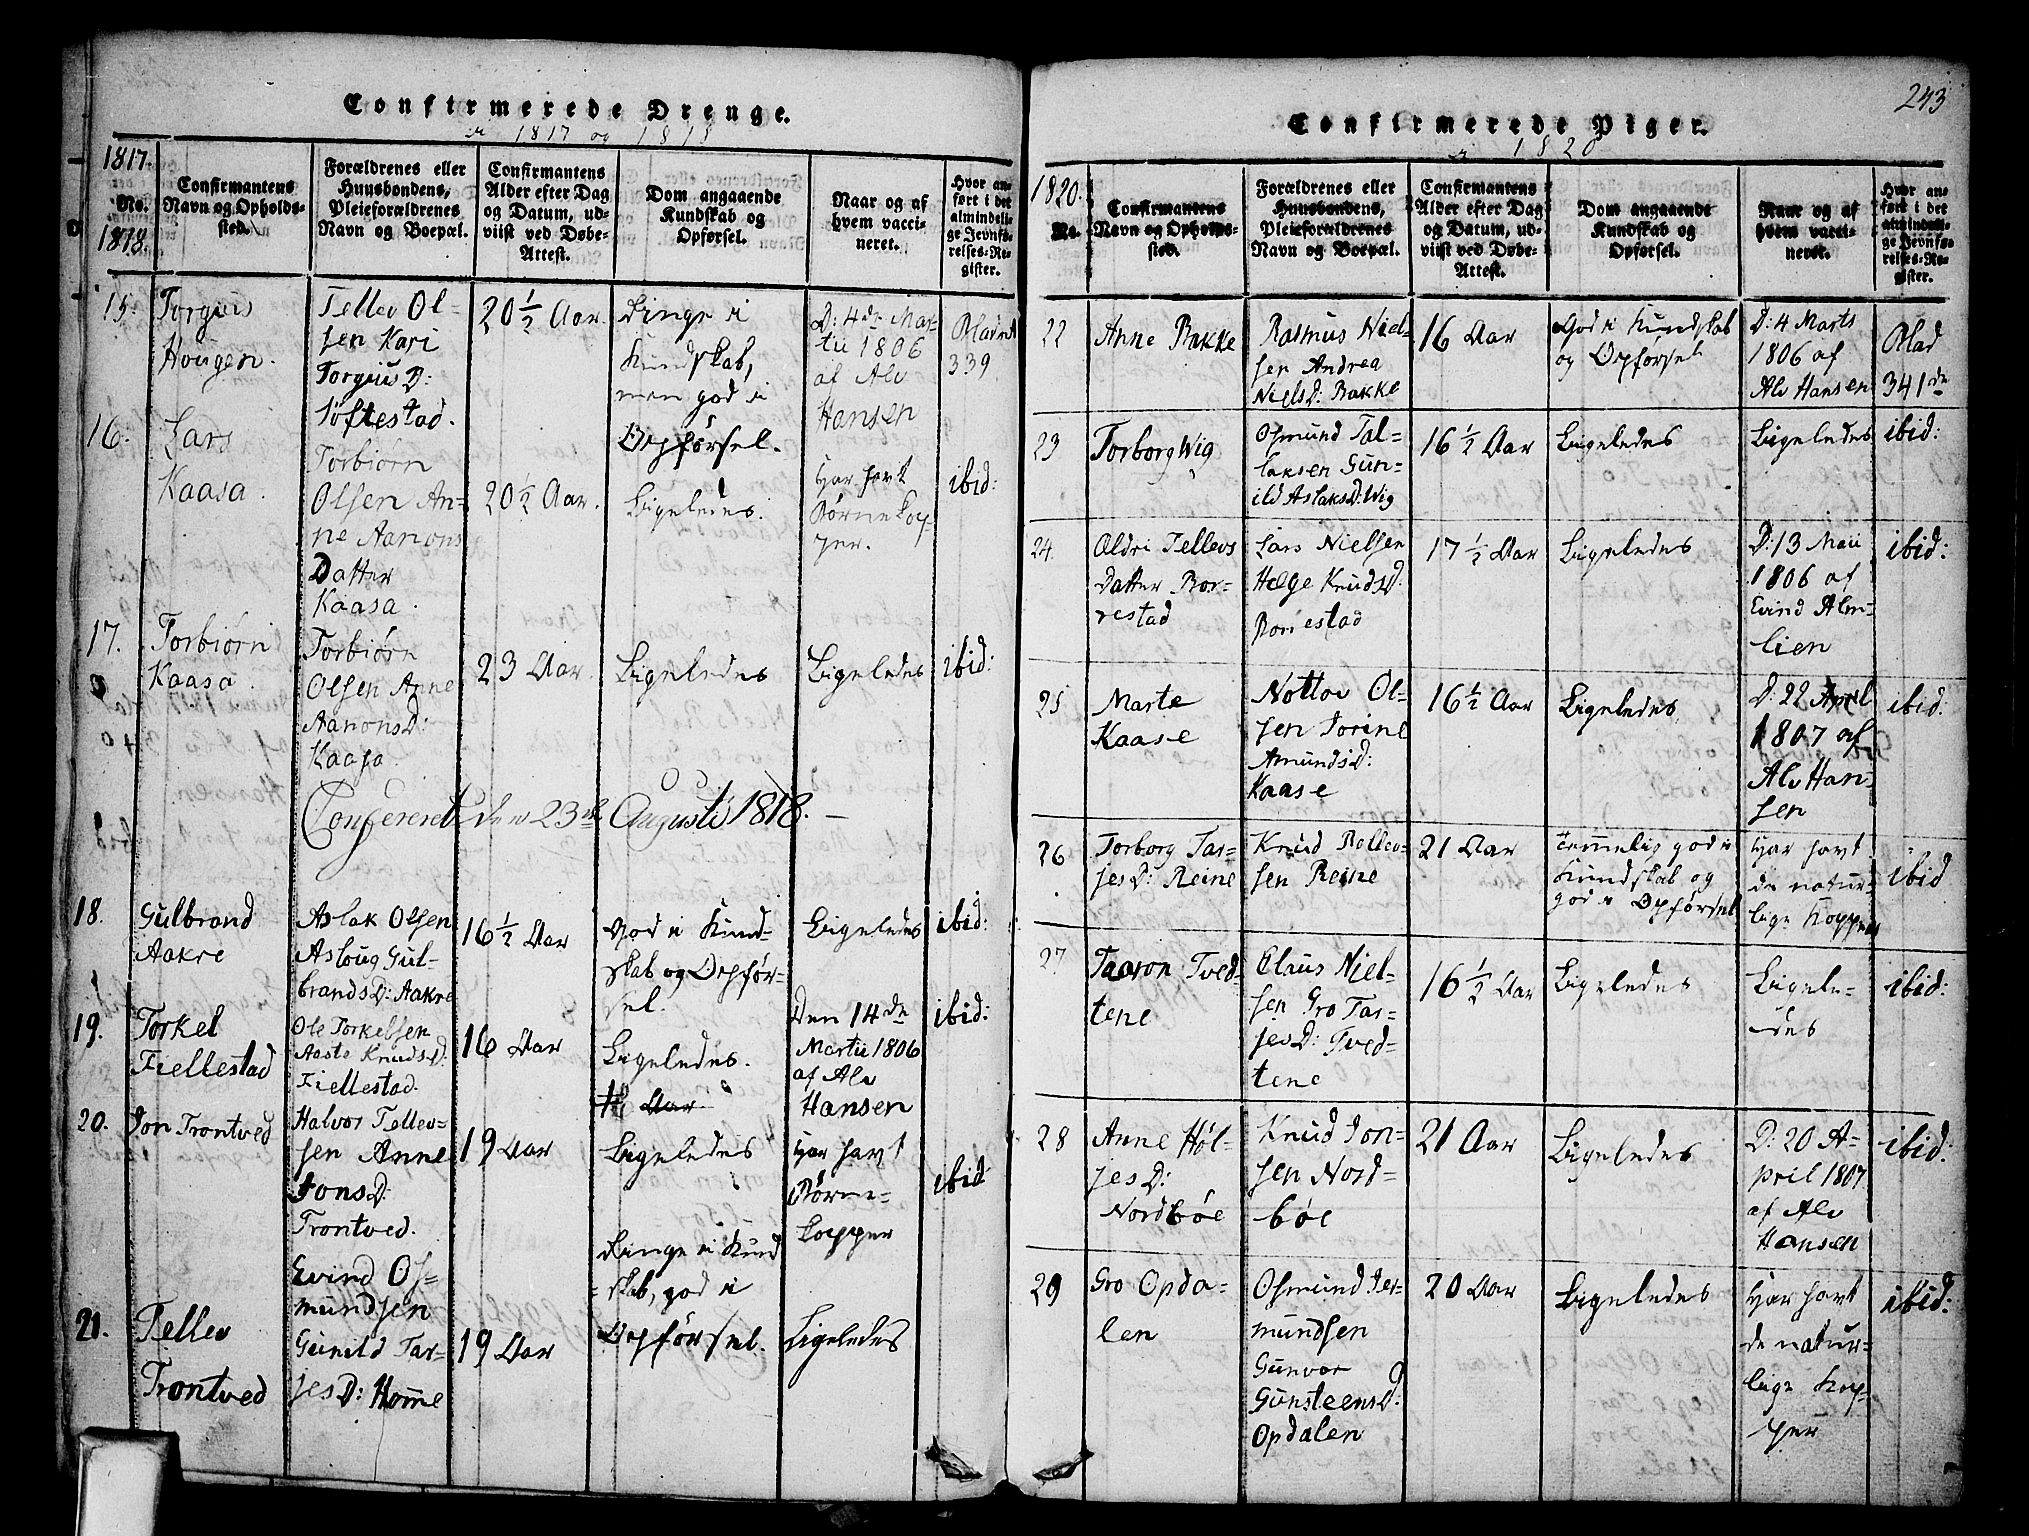 Confirmerede Drenge.
i 1817 og 1818
1817.
No.
1818.
Confirmantens
Navn og Opholds-
sted.
Forældrenes eller
Huusbondens,
Pleieforældrenes
Navn og Boepæl.
Confirmantens
Alder efter Dag
og Datum, ud-
viist ved Døbe-
Attest.
Dom angaaende
Kundskab og
Opførsel.
Naar og af
hvem vacci-
neret.
Hvor an-
ført i det
almindeli-
ge Jevnfø-
relses-Re-
gister.
15.
Torgius
Hougen.
Tellev Ol-
sen Kari
TorgiusD:
Löftestad.
20 1/2 Aar.
Ringe i
Kundskab,
men god i
Opførsel.
D: 4de Mar-
tii 1806
af Alv
Hansen
339
16.
Lars
Kaasa.
Torbiørn
Olsen An-
ne Aanons
Datter
Kaasa.
20 1/2 Aar.
Ligeledes.
Har havt
Børne Kop-
per.
ibid:
17.
Torbiørn
Kaasa.
Torbiørn
Olsen Anne
AanonsD:
Kaasa.
23 Aar.
Ligeledes
Ligeledes
ibid:
den 23de Augusti 1818.
18.
Gulbrand
Aakre
Aslak Olsen
Asloug Gul-
brandsD: Aakre
16 1/2 Aar
God i Kund-
skab og Opfør-
sel.
Ligeledes
ibid:
19.
Torkel
Fiellestad
Ole Torkelsen
Aaste KnudsD:
Fiellestad.
16 Aar
Ligeledes.
Den 14de
Martii 1806
af Alv
Hansen
ibid:
20.
Jon Trontved
Halvor Tellev-
sen Anne
JonsD:
Trontved.
19 Aar
Ligeledes
Har havt
Børne-
kopper
ibid
21.
Tellev
Trontved
Evind Os-
mundsen
Gunild Tar-
jesD: Homme
19 Aar
Ringe i Kund
skab, god i
Opførsel.
Ligeledes
243
Confirmerede Piger.
i 1820
1820.
No.
Confirmantens
Navn og Opholds-
sted.
Forældrenes eller
Huusbondens,
Pleieforældrenes
Navn og Boepæl.
Confirmantens
Alder efter Dag
og Datum, ud-
viist ved Døbe-
Attest.
Dom angaaende
Kundskab og
Opførsel.
Naar og af
hvem vacci-
neret.
Hvor an-
ført i det
almindeli-
ge Jevnfø-
relses-Re-
gister.
22
Anne Bakke
Rasmus Niel-
sen Andrea
NielsD: Bakke
16 Aar
God i Kundskab
og Opførsel
D: 4 Marts
1806 af
Alv Hansen
Blad
341de
23
Torborg Wig
Osmund Tal-
laksen Gun-
ild AslaksD: Wig
16 1/2 Aar
Ligeledes
Ligeledes
ibid:
24
Aldri Tellevs
Datter Bor-
restad
Lars Nielsen
Helge KnudsD:
Borrestad
17 1/2 Aar
Ligeledes
D: 13 Maii
1806 af
Evind Alm-
lien
ibid:
25
Marte
Kaase
Nottov Ol-
sen Jorine
AmundsD:
Kaase
16 1/2 Aar
Ligeledes
D: 22 April
1807 af
Alv Han-
sen
ibid:
26
Torborg Tar-
jesD: Reine
Knud Rollev-
sen Reine
21 Aar
Temmelig god i
Kundskab og
god i Opførsel
Har havt
de natur-
lige Kopper
ibid
27
Taaron Tved-
tene
Claus Niel-
sen Gro Tar-
jesD: Tved-
tene
16 1/2 Aar
Ligeledes
Ligele-
des
ibid:
28
Anne Høl-
jesD:
Nordbøe
Knud Jon-
sen Nord-
bøe
21 Aar
Ligeledes
D: 20 A-
pril 1807
af Alv
Hansen
ibid:
29
Gro Opda-
len
Osmund Jer-
mundsen
Gunvor
GunsteensD:
Opdalen
20 Aar
Ligeledes
Har havt
de natur-
lige Kop-
per
ibid: